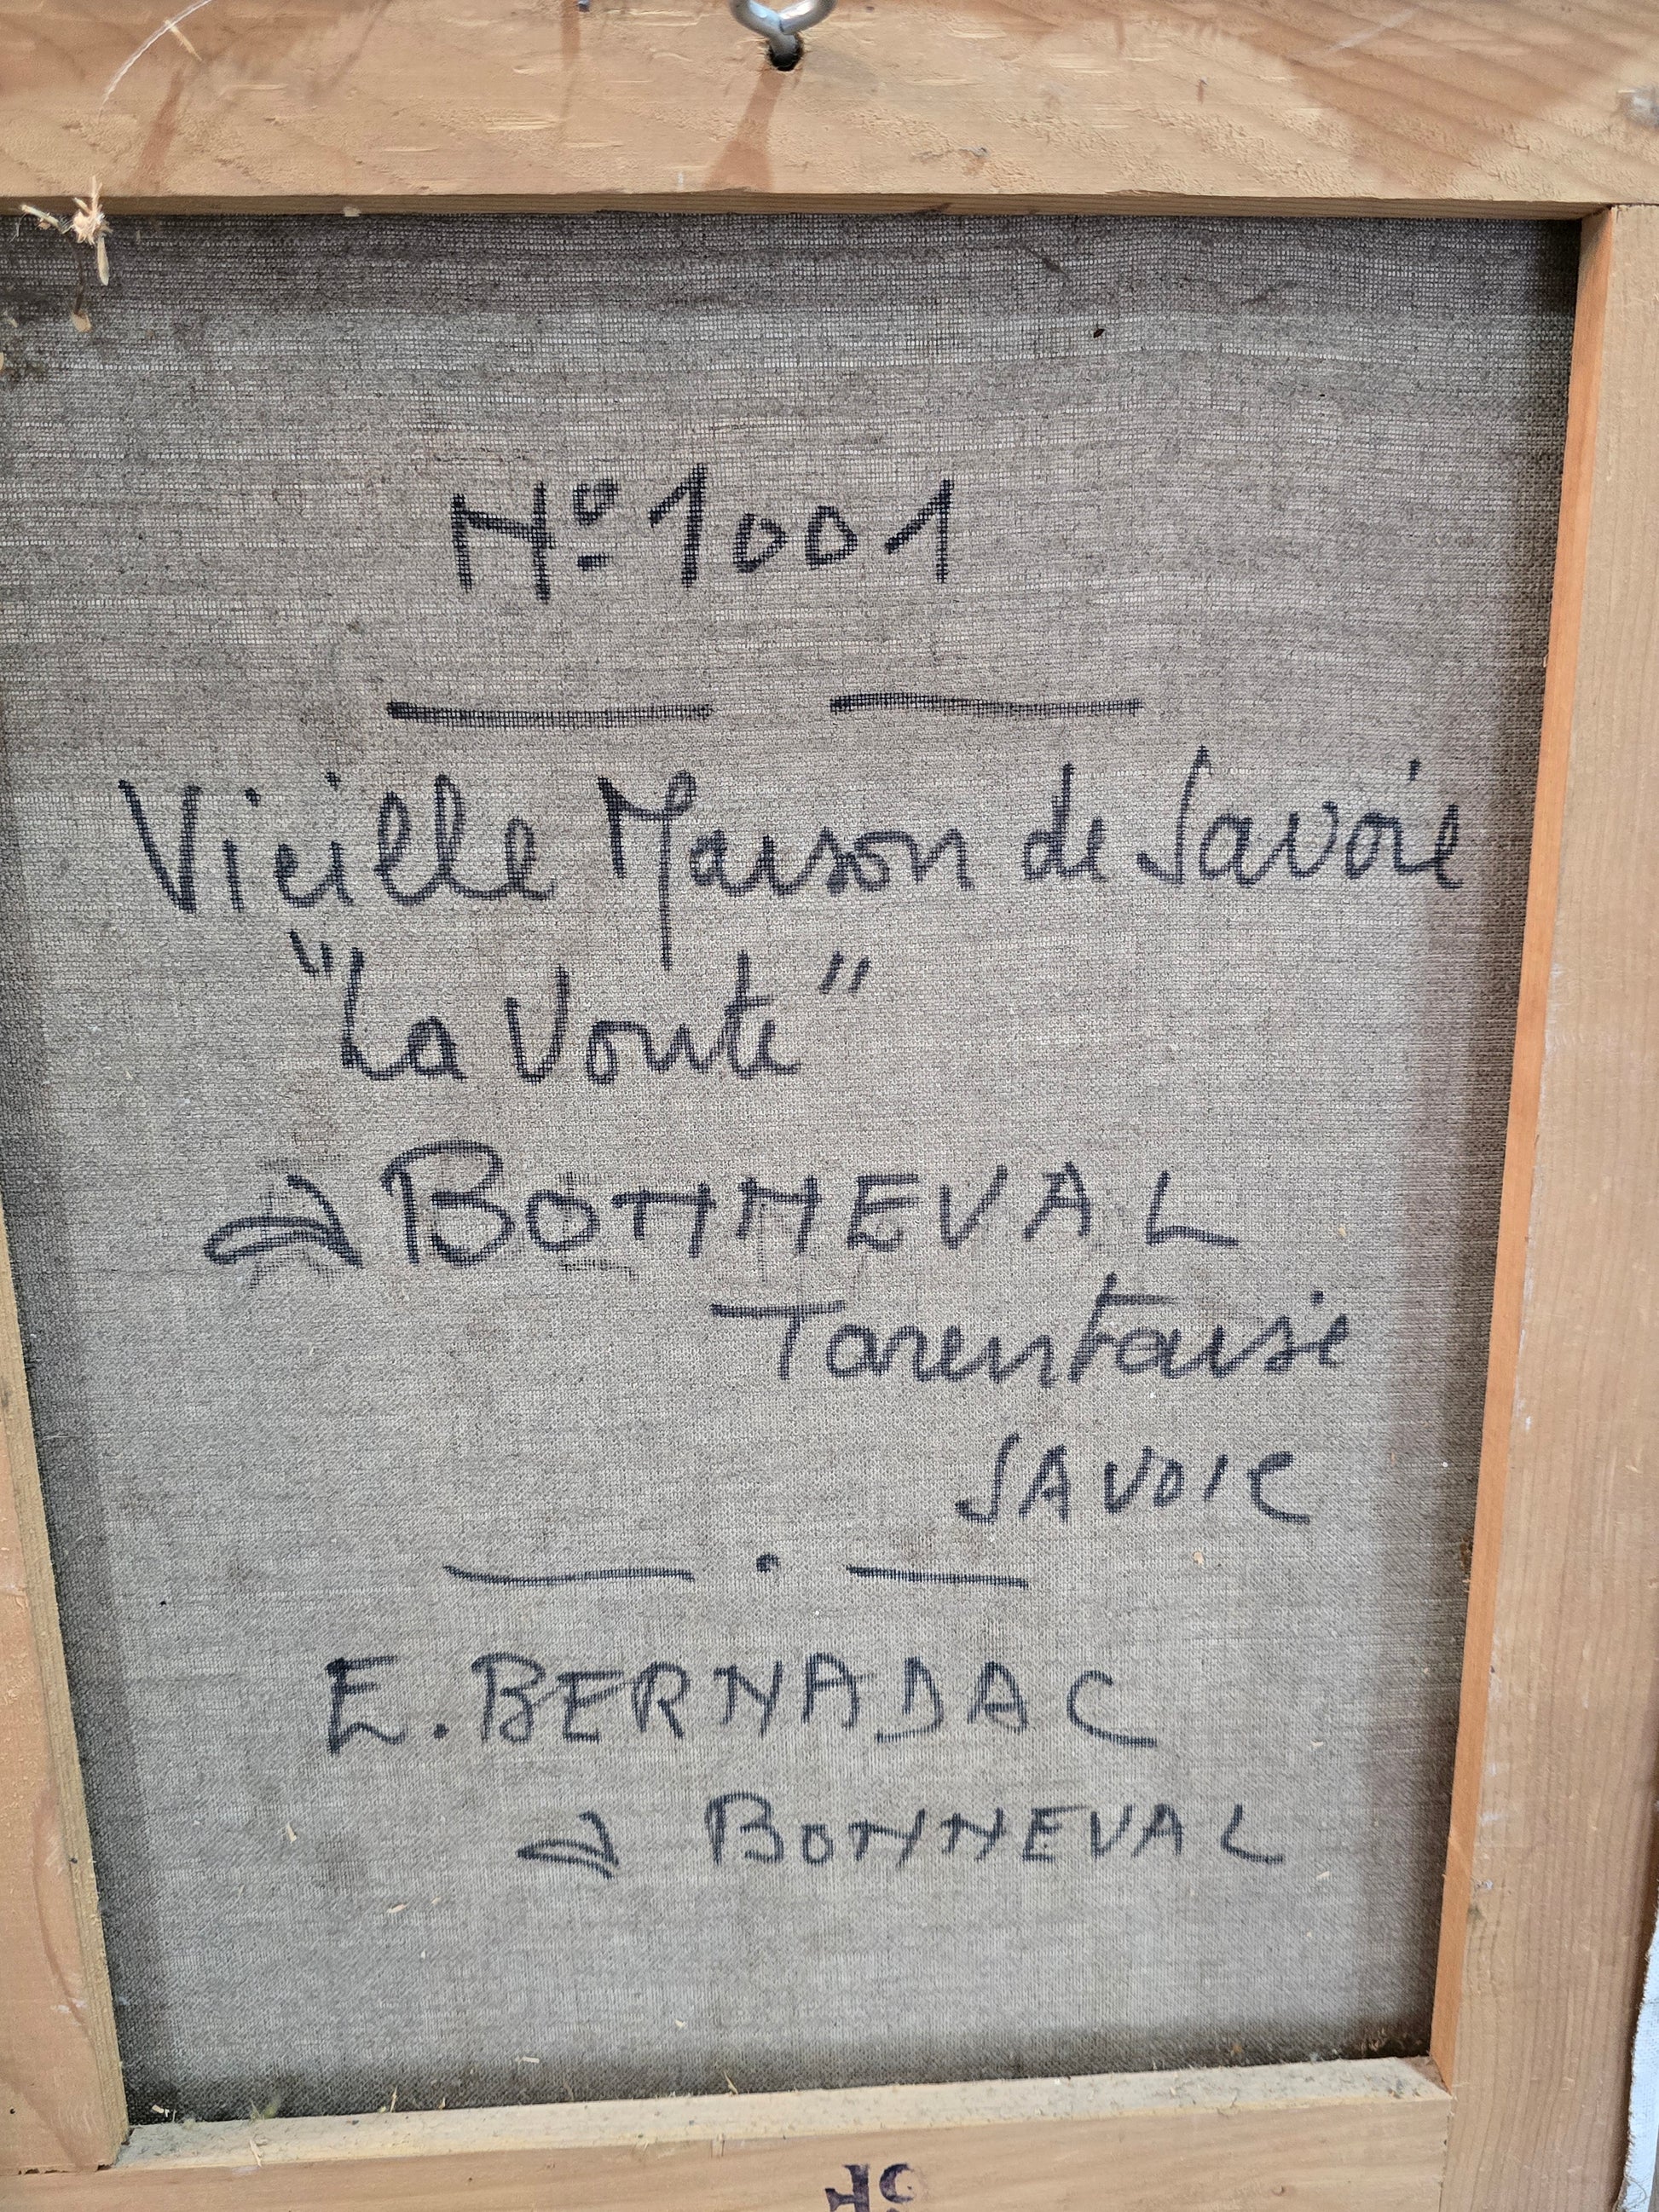 Nº 1001
Vieille Maison de Savoie
"La Voute"
à BONNEVAL
Tarentaise
SAVOIE
E. BERNADAC
à BONNEVAL